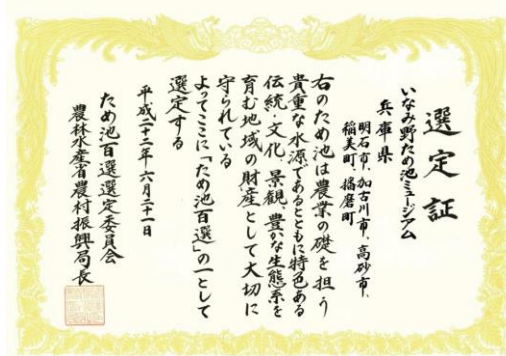 選定証
いなみ野ため池ミュージアム
兵庫県
明石市、加古川市、高砂市、
稲美町、播磨町
右のため池は農業の礎を担う
貴重な水源であるとともに特色ある
伝統・文化、景観、豊かな生態系を
育む地域の財産として大切に
守られている
よってここに「ため池百選」の一として
選定する
平成二十二年六月二十一日
ため池百選選定委員会
農林水産省農村振興局長